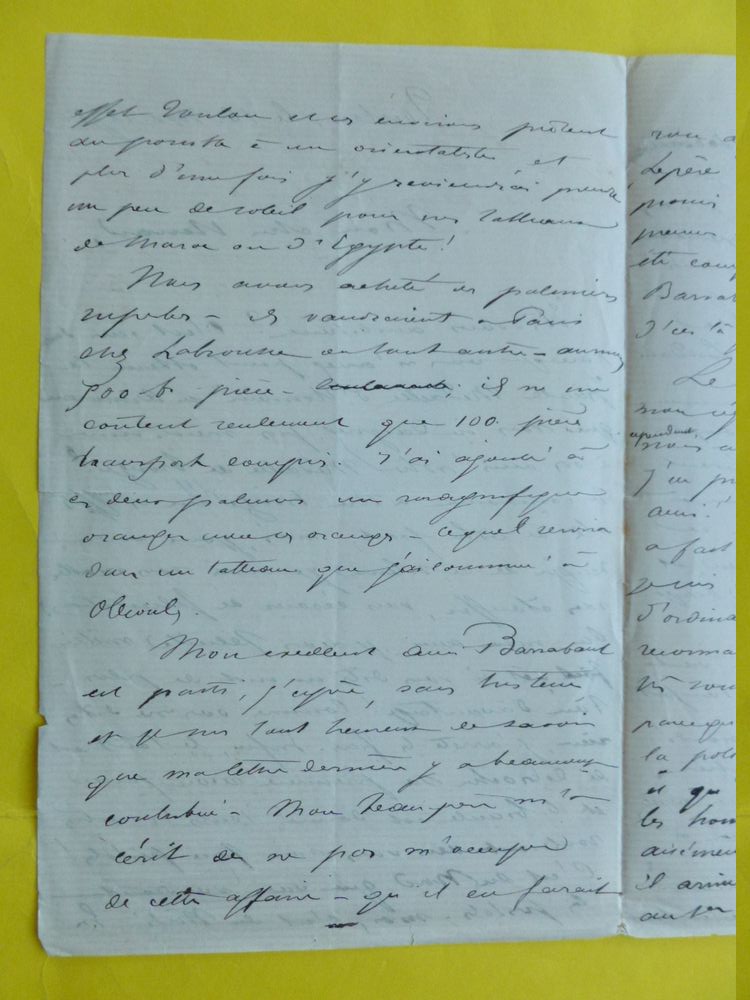 effet Toulon et ses environs prêtent
du pousta à un orientaliste et
plus d'une fois j'y reviendrai prendre
un peu de soleil pour mes tableaux
de Maroc ou d'Egypte!
Nous avons acheté des palmiers
superbes - ils vaudraient à Paris
chez Labrousse ou tout autre - au moins
500 f. pièce - il ne me
content seulement que 100 pièce
transport compris. J'ai ajouté à
ces deux palmiers un magnifique
oranger avec ses oranges - lequel servira
dans un tableau que j'ai commencé à
Ollioules.
Mon excellent ami Barrabant
est parti, j'espère, sans tristesse
et je suis tout heureux de savoir
que ma lettre dernière y a beaucoup
contribué - Mon beau père m'a
écrit de ne pas m'occuper
de cette affaire - qu'il en ferait
Le père
promis
été
Barrab
d'ici là
Le
cependant
ami!
a fait
je suis
d'ordina
la
et que
les hom
il arriv